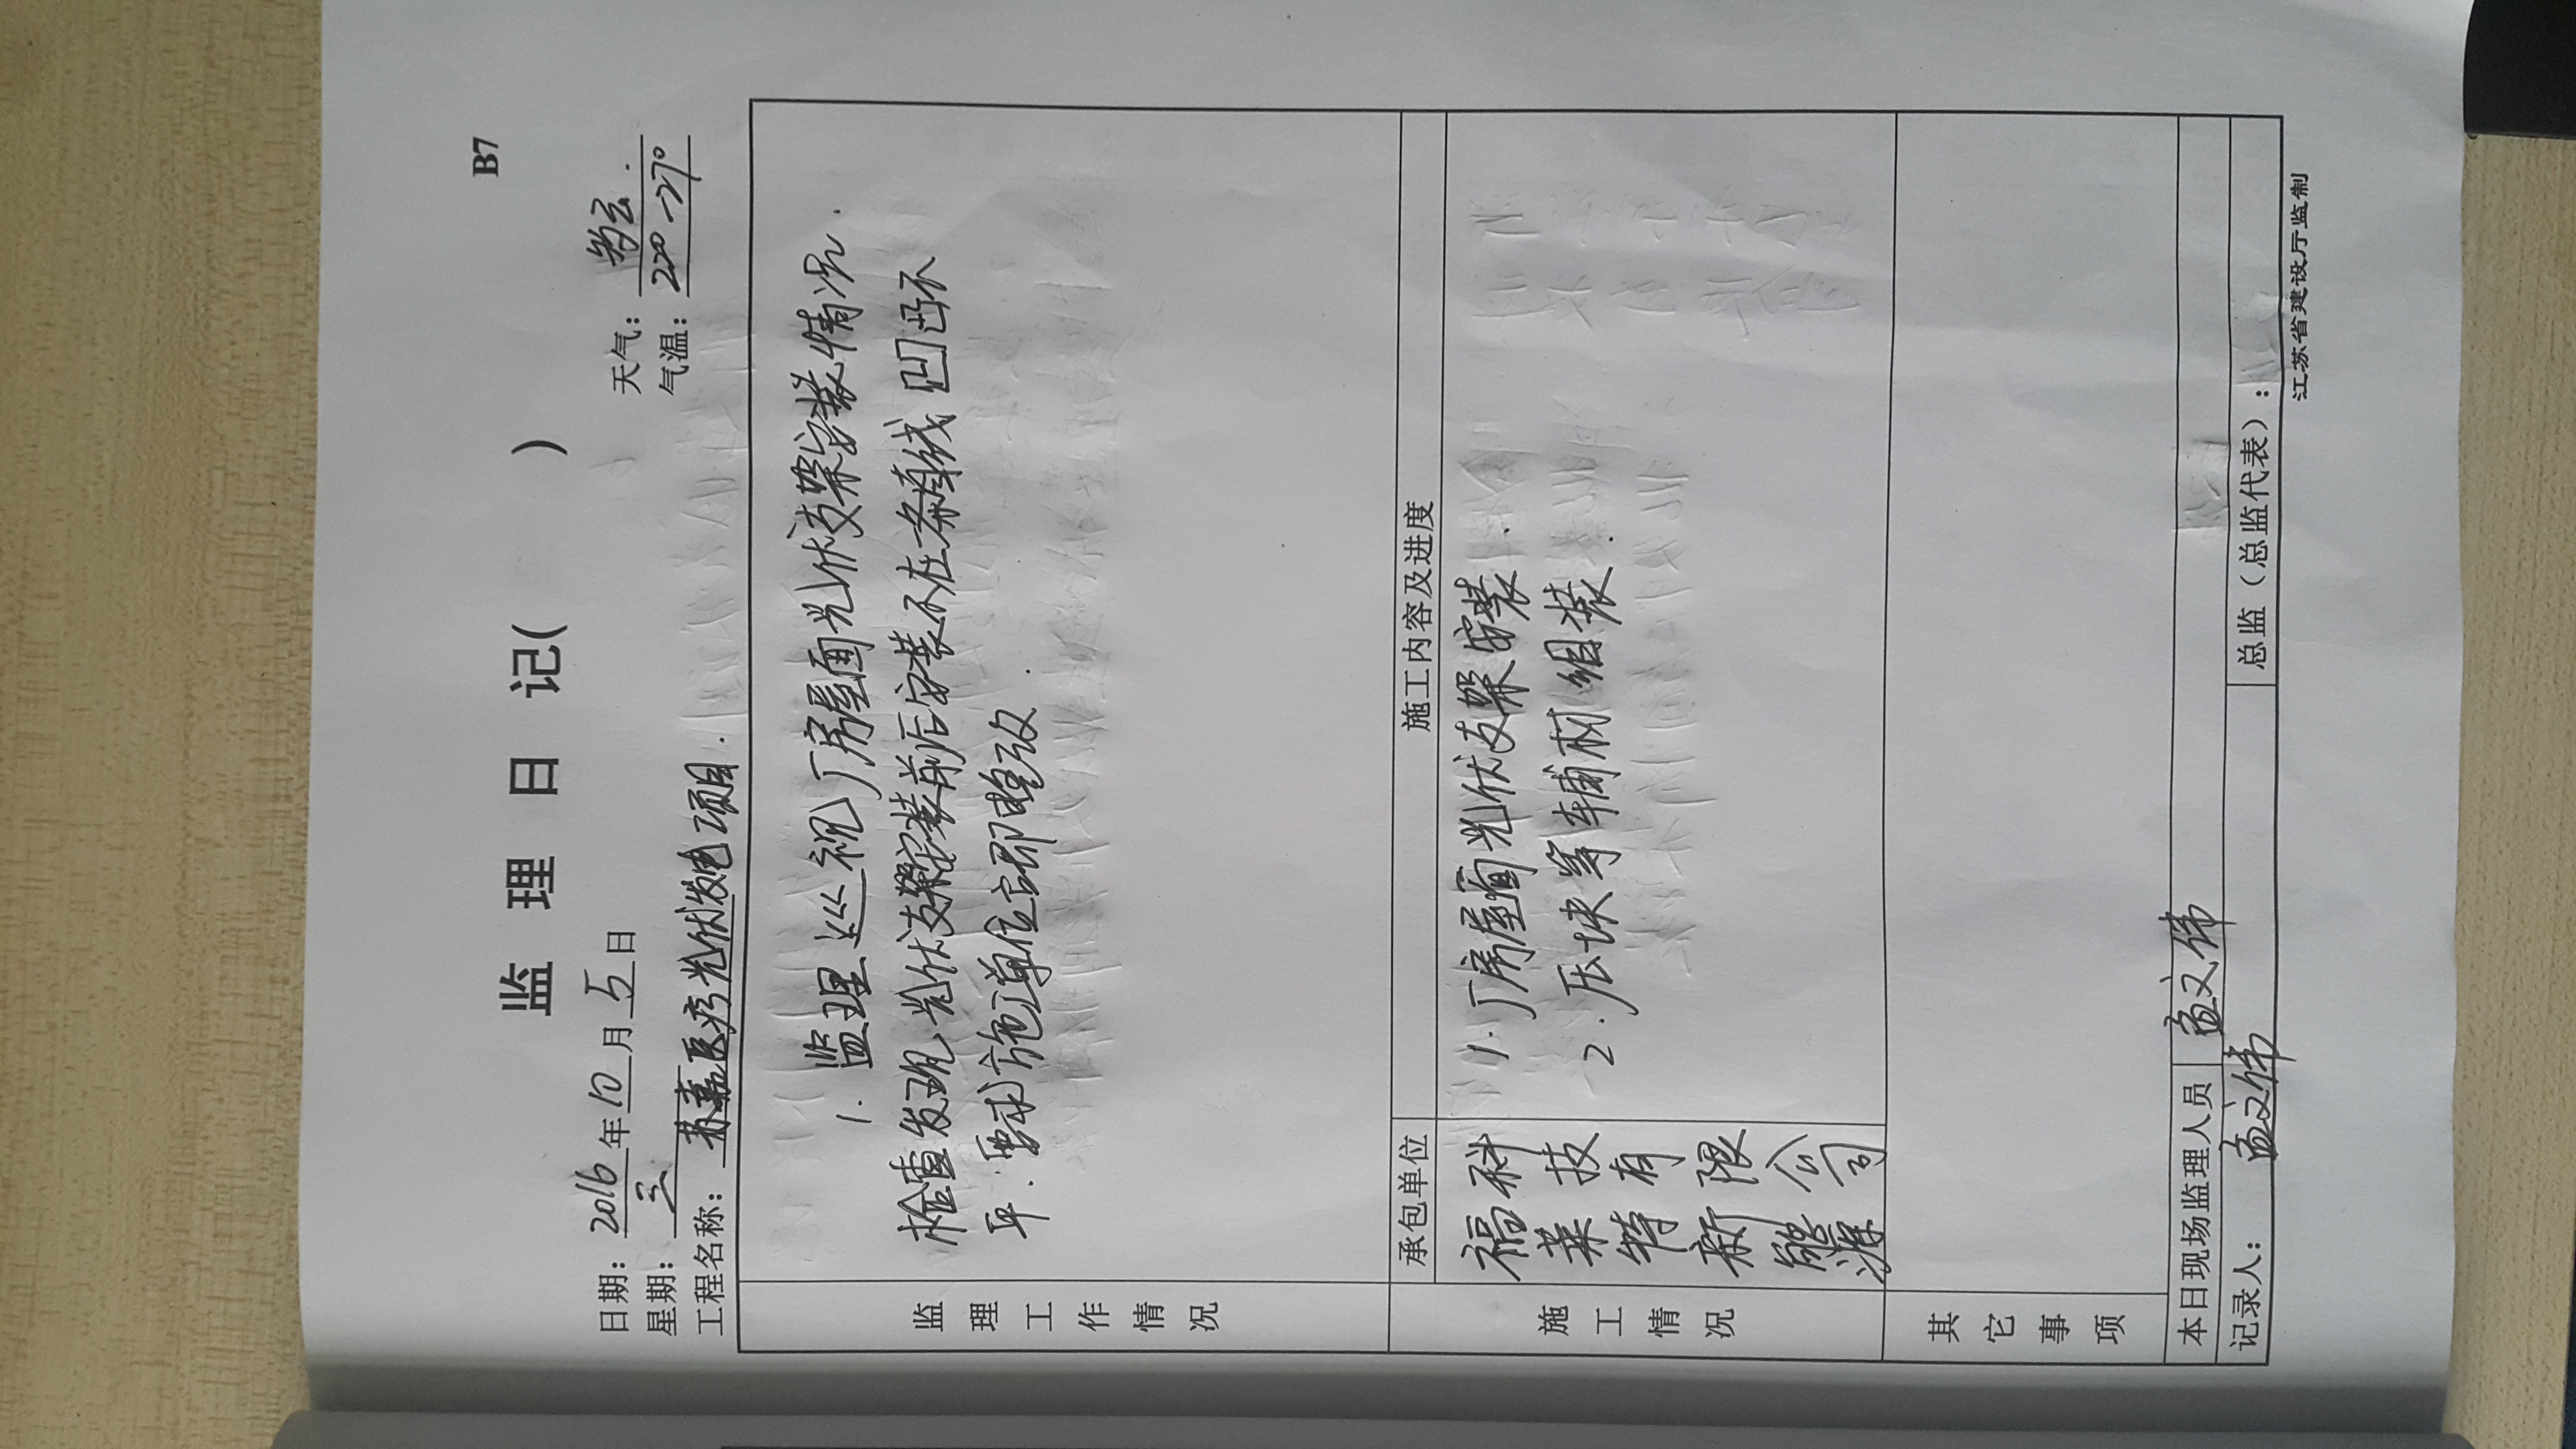 B7
监 理 日 记( )
日期: 2016 年 10 月 5 日 天气: 多云.
星期: 三 气温: 22°-27°
工程名称: 苏嘉医疗光伏发电项目.
监理工作情况
1. 监理巡视厂房屋面光伏支架安装情况.
检查发现光伏支架安装前后安装不在一条直线凹凸不
平.要求施工单位立即整改.
施工情况
承包单位 施工内容及进度
福莱特新能源
科技有限公司
1.厂房屋面光伏支架安装.
2.压块等辅材组装.
其它事项
本日现场监理人员 孟文伟
记录人: 孟文伟 总监(总监代表):
江苏省建设厅监制